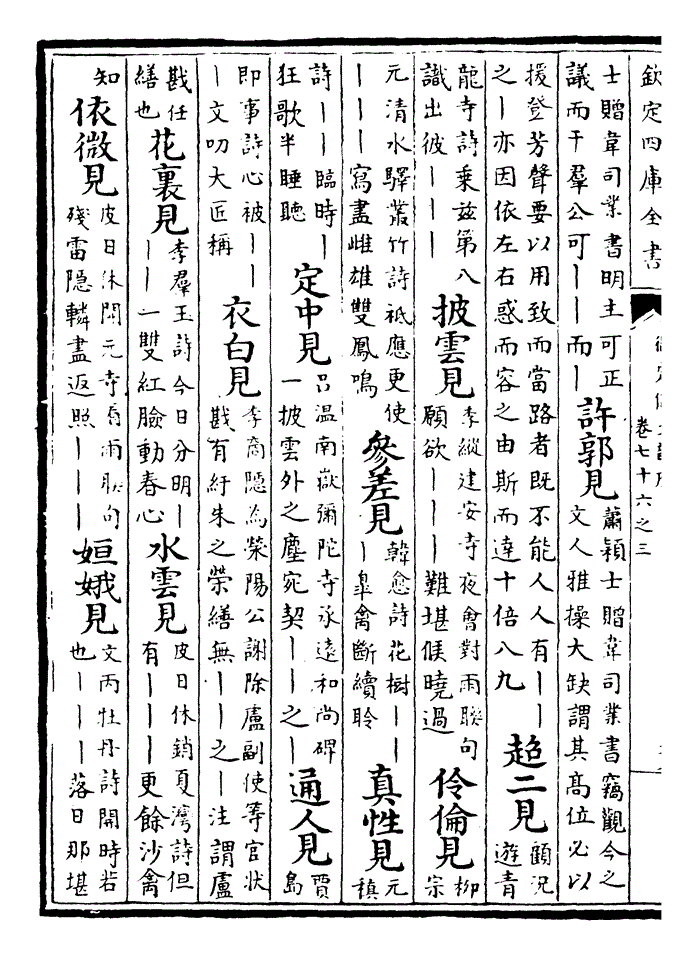 欽定四庫全書
卷七十六之三
士贈韋司業書明主可正
議而干羣公可——而—
許郭見
蕭穎士贈韋司業書竊觀今之
文人雅操大缺謂其高位必以
援登芳聲要以用致而當路者既不能人人有——
之—亦因依左右惑而容之由斯而達十倍八九
超二見
顧況
遊青
龍寺詩乘兹第八
識出彼———
披雲見
李縱建安寺夜會對雨聯句
願欲———難堪候曉過
伶倫見
柳
宗
元清水驛叢竹詩祗應更使
———寫盡雌雄雙鳳鳴
參差見
韓愈詩花樹——
—臯禽斷續聆
真性見
元
稹
詩——臨時—
狂歌半睡聽
定中見
呂温南嶽彌陀寺承遠和尚碑
一披雲外之塵宛契——之—
通人見
賈
島
即事詩心被——
—文叨大匠稱
衣白見
李商隱為滎陽公謝除盧副使等官狀
戡有紆朱之榮繕無——之—注謂盧
戡任
繕也
花裏見
李羣玉詩今日分明—
——一雙紅臉動春心
水雲見
皮日休銷夏灣詩但
有———更餘沙禽
知
依微見
皮日休開元寺喬雨聯句
殘雷隱轔盡返照———
姮娥見
文丙牡丹詩開時若
也———落日那堪